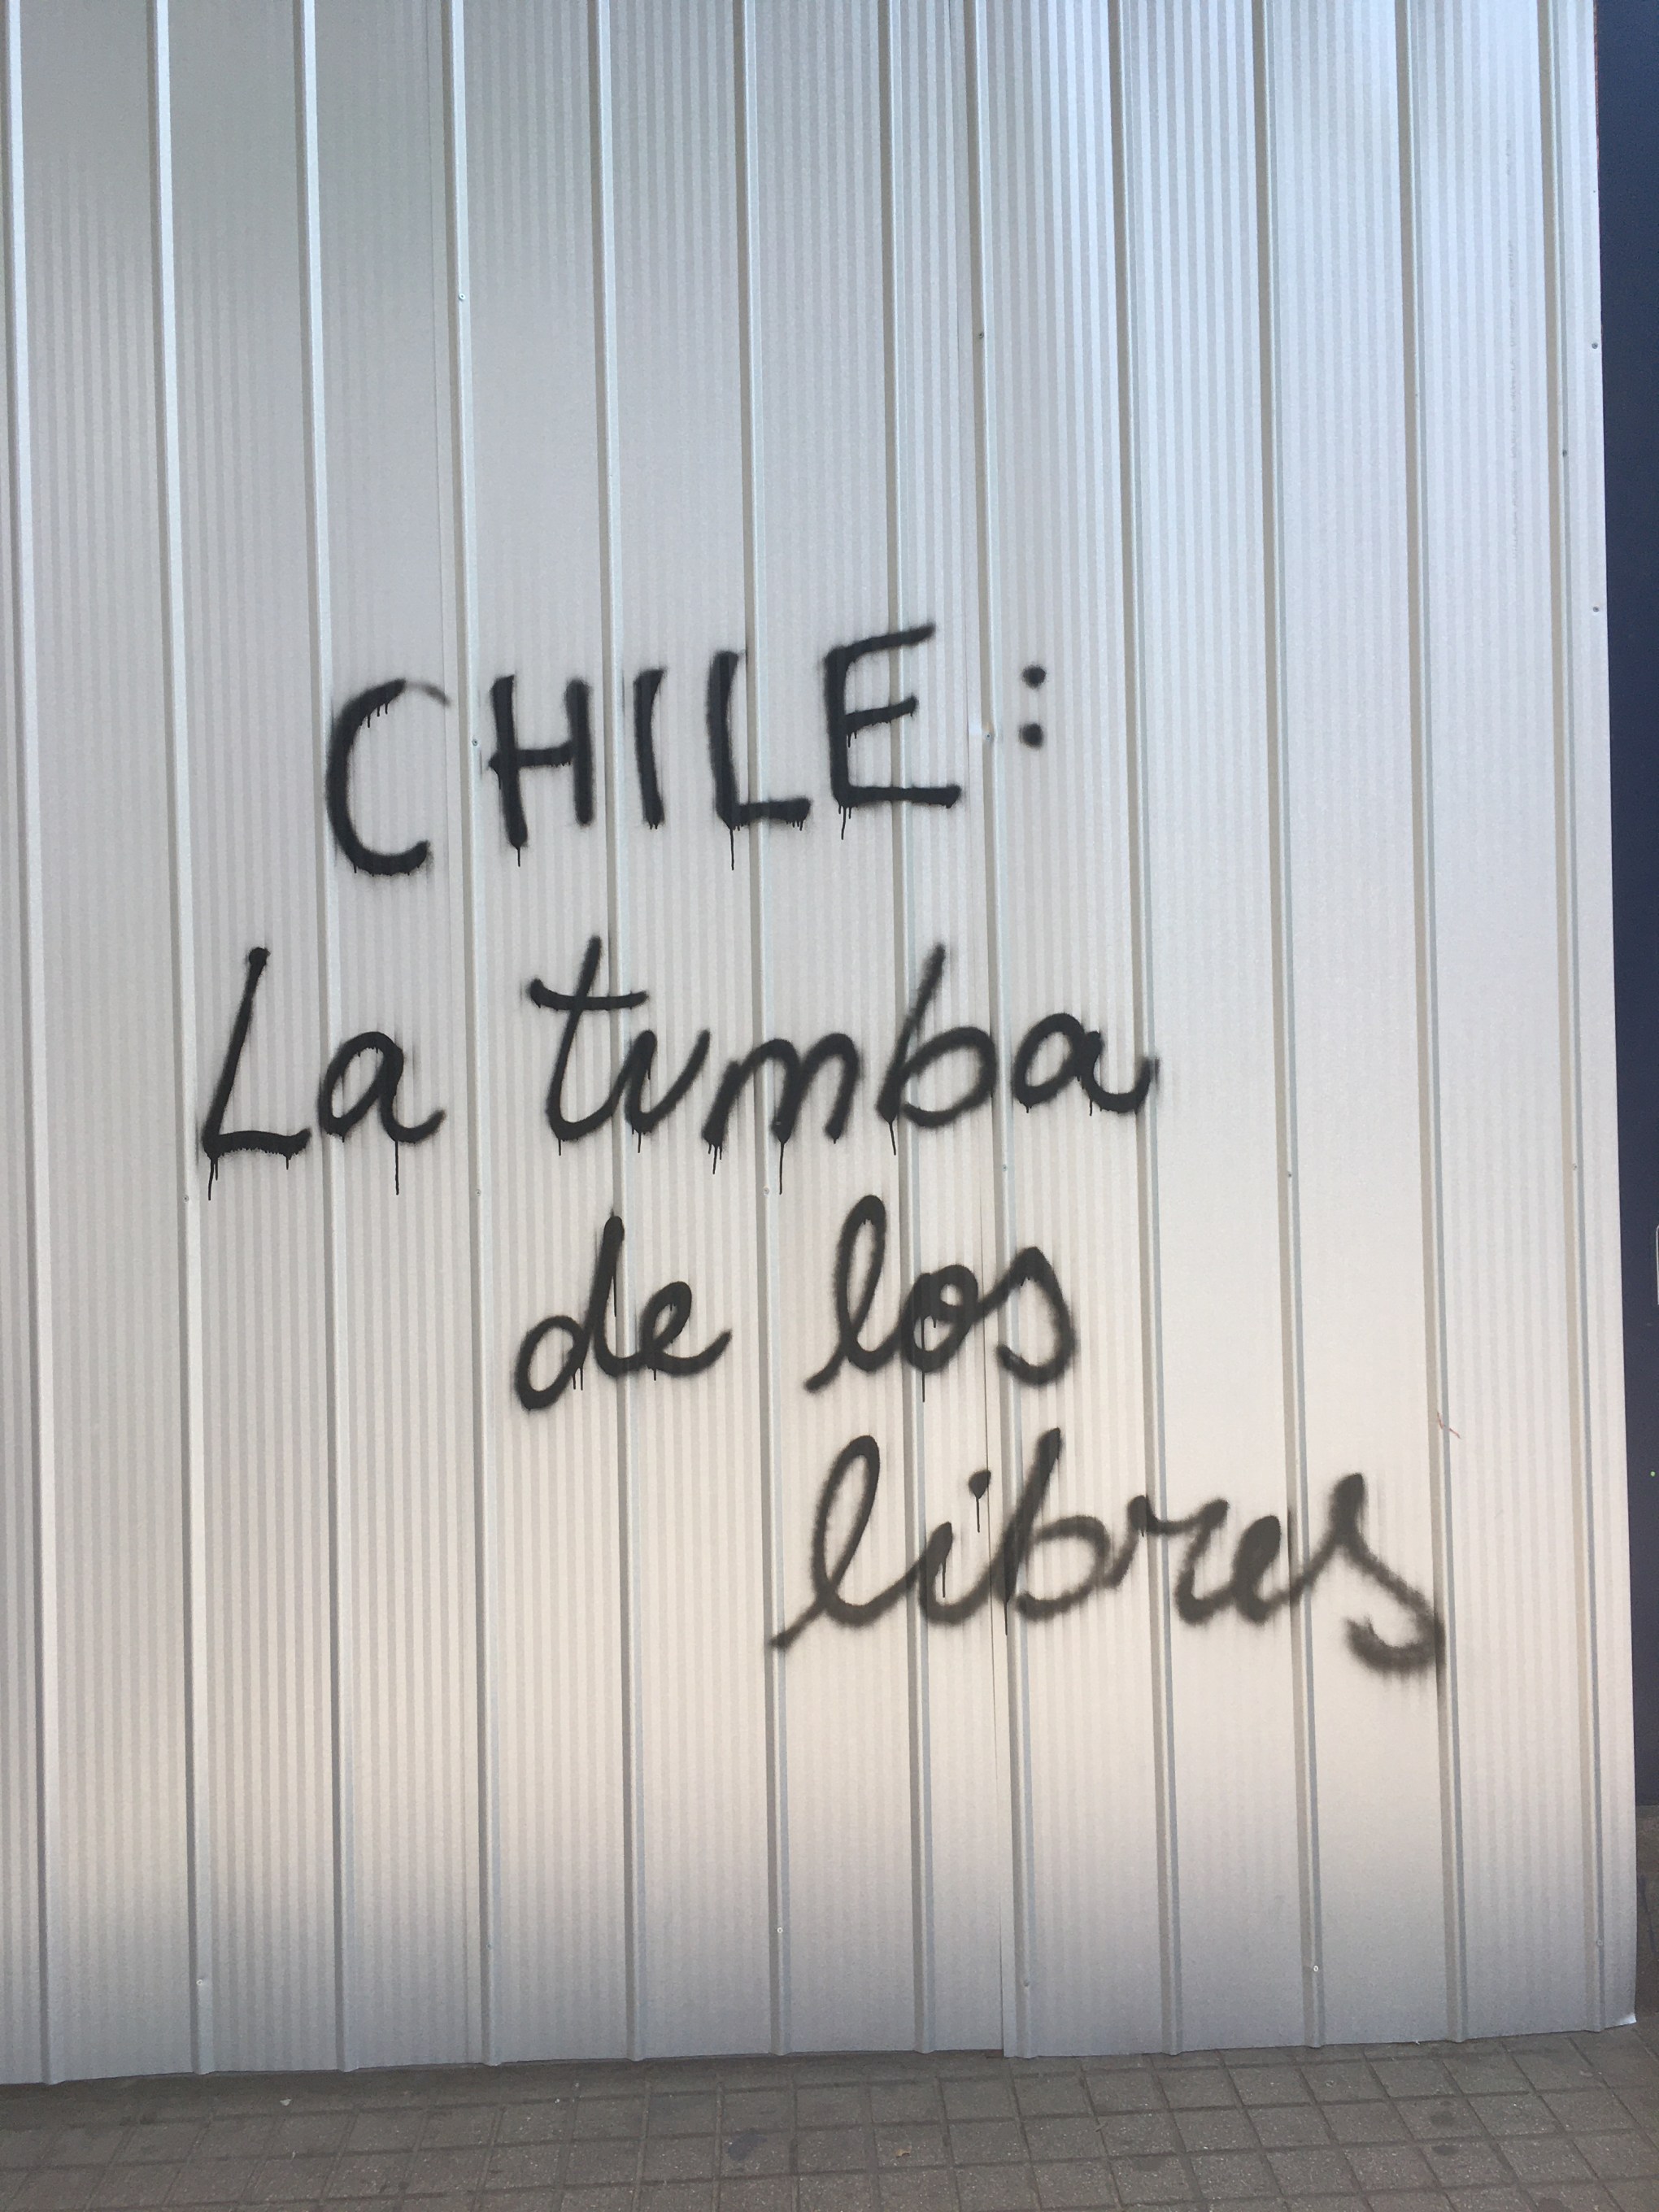 CHILE:
La tumba
de los
libres